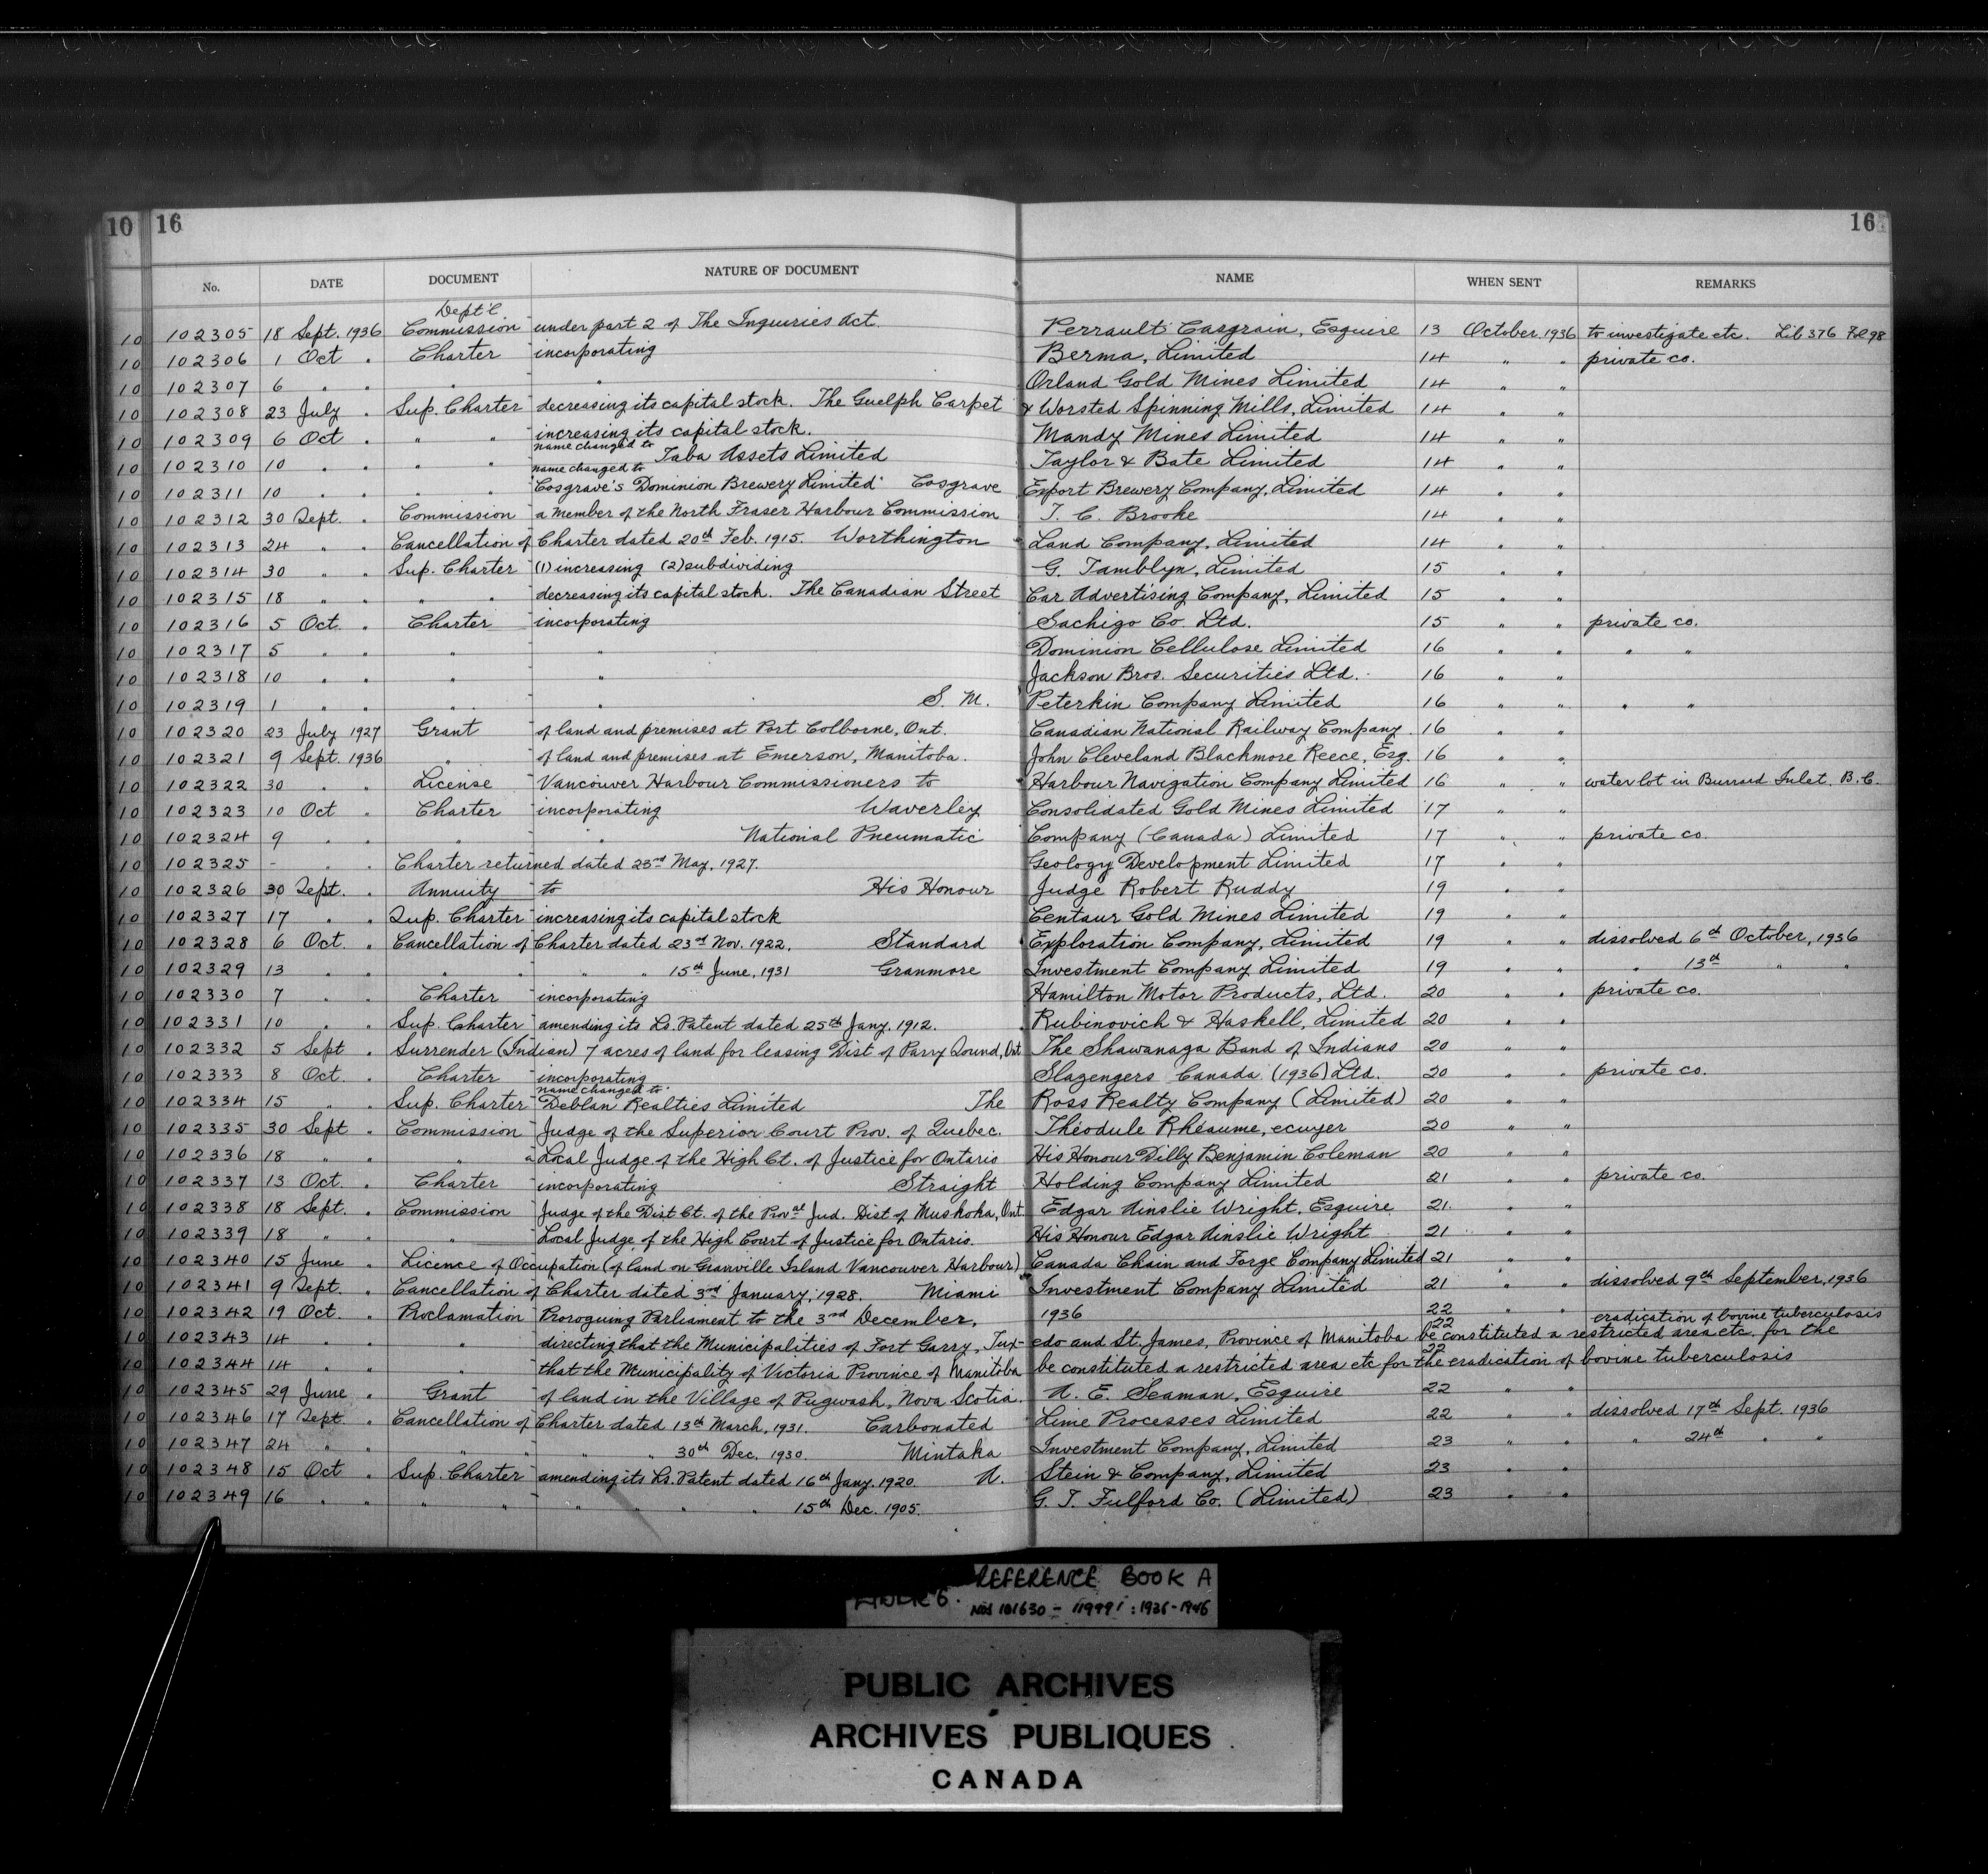 10 16 16
No. DATE DOCUMENT NATURE OF DOCUMENT NAME WHEN SENT REMARKS
Dept'l.
10 102305 18 Sept. 1936 Commission under part 2 of The Inquiries Act. Perrault Casgrain, Esquire 13 October. 1936 to investigate etc. Lib 376 Fol 98
10 102306 1 Oct " Charter incorporating Berma, Limited 14 " " private co.
10 102307 6 " " " " Orland Gold Mines Limited 14 " "
10 102308 23 July " Sup. Charter decreasing its capital stock. The Guelph Carpet & Worsted Spinning Mills, Limited 14 " "
10 102309 6 Oct " " " increasing its capital stock. Mandy Mines Limited 14 " "
name changed to
10 102310 10 " " " " Taba Assets Limited Taylor & Bate Limited 14 " "
name changed to
10 102311 10 " " " " "Cosgrave's Dominion Brewery Limited" Cosgrave Export Brewery Company, Limited 14 " "
10 102312 30 Sept. " Commission a member of the North Fraser Harbour Commission T. C. Brooke 14 " "
10 102313 24 " " Cancellation of Charter dated 20th Feb. 1915. Worthington Land Company, Limited 14 " "
10 102314 30 " " Sup. Charter (1) increasing (2) subdividing G. Tamblyn, Limited 15 " "
10 102315 18 " " " " decreasing its capital stock. The Canadian Street Car Advertising Company, Limited 15 " "
10 102316 5 Oct. " Charter incorporating Sachigo Co. Ltd. 15 " " private co.
10 102317 5 " " " " Dominion Cellulose Limited 16 " " " "
10 102318 10 " " " " Jackson Bros. Securities Ltd. 16 " "
10 102319 1 " " " " S. M. Peterkin Company Limited 16 " " " "
10 102320 23 July 1927 Grant of land and premises at Port Colborne, Ont. Canadian National Railway Company. 16 " "
10 102321 9 Sept. 1936 " of land and premises at Emerson, Manitoba. John Cleveland Blackmore Reece, Esq. 16 " "
10 102322 30 " " License Vancouver Harbour Commissioners to Harbour Navigation Company Limited 16 " " water lot in Burrard Inlet. B.C.
10 102323 10 Oct " Charter incorporating Waverley Consolidated Gold Mines Limited 17 " "
10 102324 9 " " " " National Pneumatic Company (Canada) Limited 17 " " private co.
10 102325 - " " Charter returned dated 23rd May, 1927. Geology Development Limited 17 " "
10 102326 30 Sept. " Annuity to His Honour Judge Robert Ruddy 19 " "
10 102327 17 " " Sup. Charter increasing its capital stock Centaur Gold Mines Limited 19 " "
10 102328 6 Oct. " Cancellation of Charter dated 23rd Nov. 1922. Standard Exploration Company, Limited 19 " " dissolved 6th October, 1936
10 102329 13 " " " " " " 15th June, 1931 Granmore Investment Company Limited 19 " " " 13th " "
10 102330 7 " " Charter incorporating Hamilton Motor Products, Ltd. 20 " " private co.
10 102331 10 " " Sup. Charter amending its Ls. Patent dated 25th Jany. 1912. Rubinovich & Haskell, Limited 20 " "
10 102332 5 Sept " Surrender (Indian) 7 acres of land for leasing Dist of Parry Sound, Ont. The Shawanaga Band of Indians 20 " "
10 102333 8 Oct. " Charter incorporating Slazengers Canada (1936) Ltd. 20 " " private co.
name changed to
10 102334 15 " " Sup. Charter Deblan Realties Limited The Ross Realty Company (Limited) 20 " "
10 102335 30 Sept " Commission Judge of the Superior Court Prov. of Quebec. Théodule Rhéaume, ecuyer 20 " "
10 102336 18 " " " a Local Judge of the High Ct. of Justice for Ontario His Honour Dilly Benjamin Coleman 20 " "
10 102337 13 Oct. " Charter incorporating Straight Holding Company Limited 21 " " private co.
10 102338 18 Sept. " Commission Judge of the Dist Ct. of the Proval Jud. Dist of Muskoka, Ont. Edgar Ainslie Wright, Esquire 21. " "
10 102339 18 " " " Local Judge of the High Court of Justice for Ontario. His Honour Edgar Ainslie Wright 21 " "
10 102340 15 June " Licence of Occupation (of land on Granville Island Vancouver Harbour) Canada Chain and Forge Company Limited 21 " "
10 102341 9 Sept. " Cancellation of Charter dated 3rd January, 1928. Miami Investment Company Limited 21 " " dissolved 9th September, 1936
10 102342 19 Oct. " Proclamation Proroguing Parliament to the 3rd December, 1936 22 " " eradication of bovine tuberculosis
10 102343 14 " " " directing that the Municipalities of Fort Garry, Tuxedo and St. James, Province of Manitoba be constituted a restricted area etc. for the 22
10 102344 14 " " " that the Municipality of Victoria Province of Manitoba be constituted a restricted area etc for the eradication of bovine tuberculosis 22
10 102345 29 June " Grant of land in the Village of Pugwash, Nova Scotia. A. E. Seaman, Esquire 22 " "
10 102346 17 Sept " Cancellation of Charter dated 13th March, 1931. Carbonated Lime Processes Limited 22 " " dissolved 17th Sept. 1936
10 102347 24 " " " " " " 30th Dec. 1930. Mintaka Investment Company, Limited 23 " " " 24th " "
10 102348 15 Oct " Sup. Charter amending its Ls. Patent dated 16th Jany. 1920. A. Stein & Company, Limited 23 " "
10 102349 16 " " " " " " " " 15th Dec. 1905. G. T. Fulford Co. (Limited) 23 " "
REFERENCE BOOK A
Nos 101630 - 119991 : 1936-1946
PUBLIC ARCHIVES
ARCHIVES PUBLIQUES
CANADA